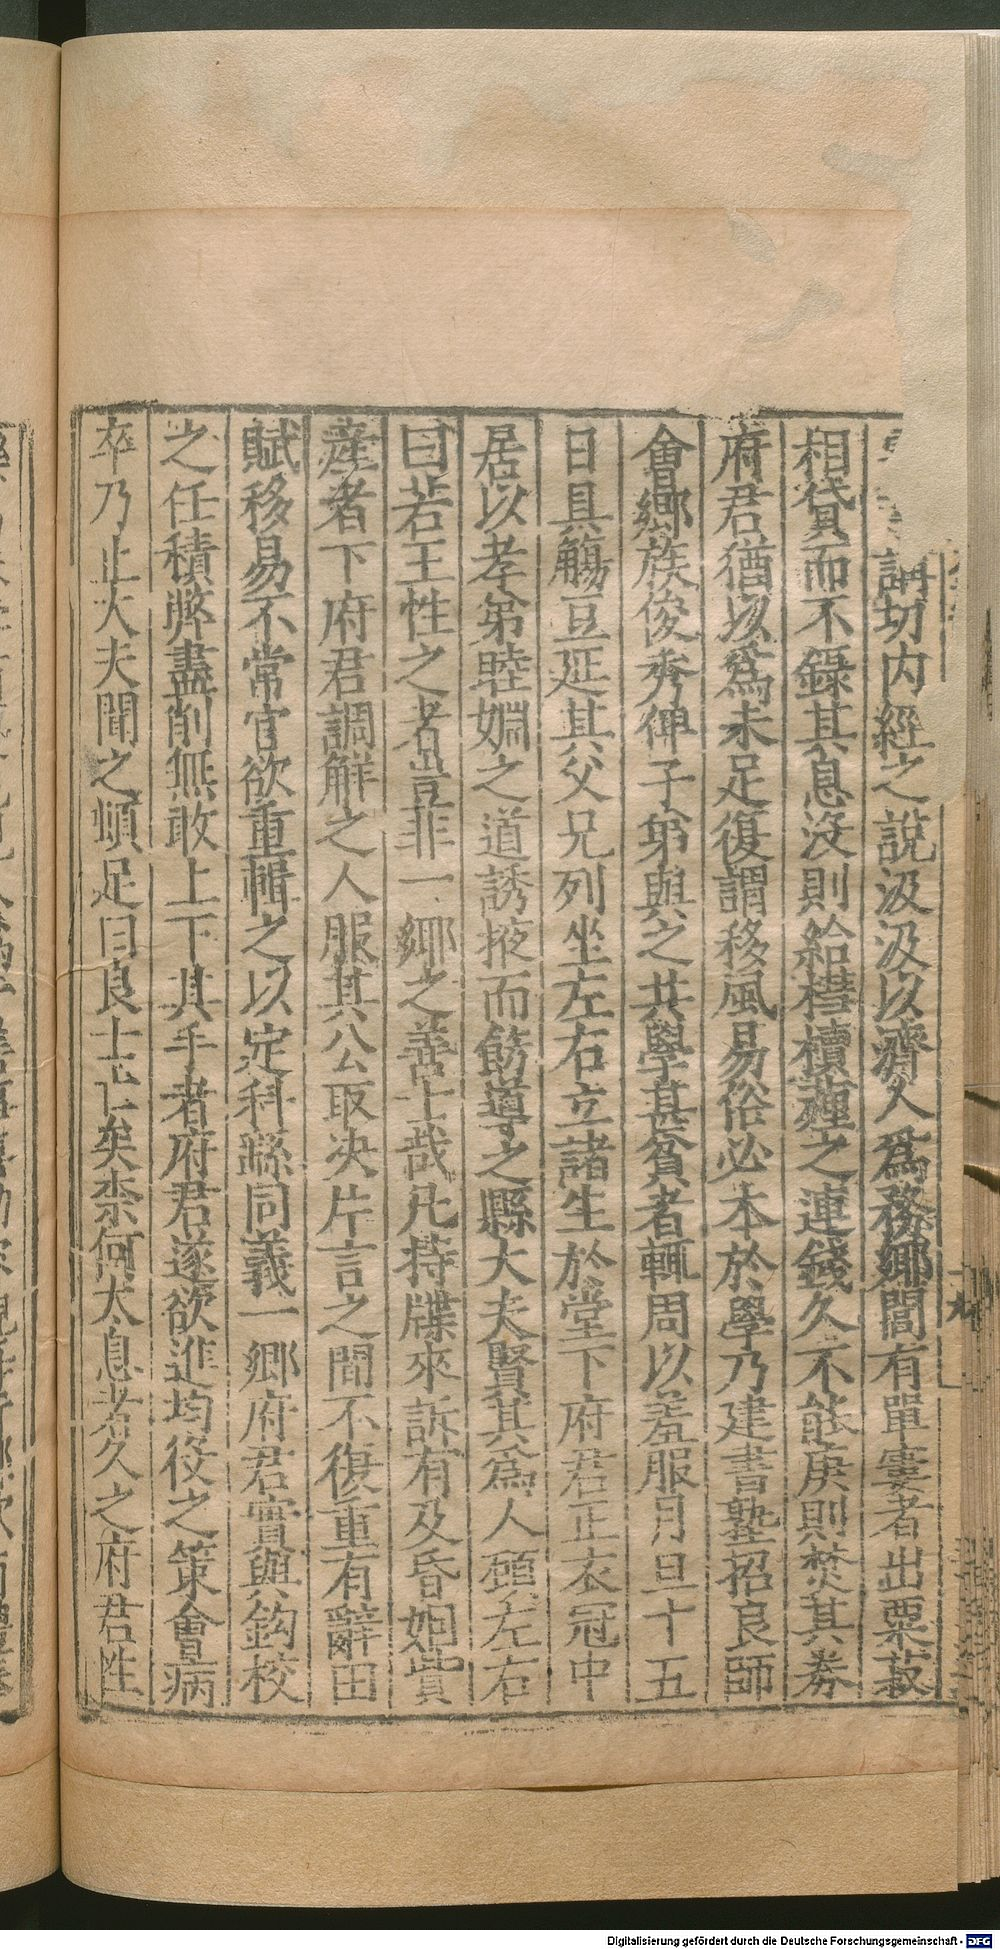 謂切内經之說汲汲以濟人爲務鄉閭有單窶者出粟菽
相貸而不錄其息沒則給槥櫝薶之連錢久不能庚則焚其券
府君猶以爲未足復謂移風易俗必本於學乃建書塾招良師
會鄉族俊秀俾子弟與之共學甚貧者輒周以羞服月旦十五
日具觴豆延其父兄列坐左右立諸生於堂下府君正衣冠中
居以孝弟睦婣之道誘掖而飭導之縣大夫賢其爲人顧左右
曰若王性之者豈非一鄉之善士哉凡持牒來訴有及昏姻貲
產者下府君調解之人服其公取决片言之間不復重有辭田
賦移易不常官欲重輯之以定科繇同義一鄉府君實與鈎校
之任積弊盡削無敢上下其手者府君遂欲進均役之策會病
卒乃止大夫聞之頓足曰良士亡矣柰何太息者久之府君性
九
Digitalisierung gefördert durch die Deutsche Forschungsgemeinschaft - DFG